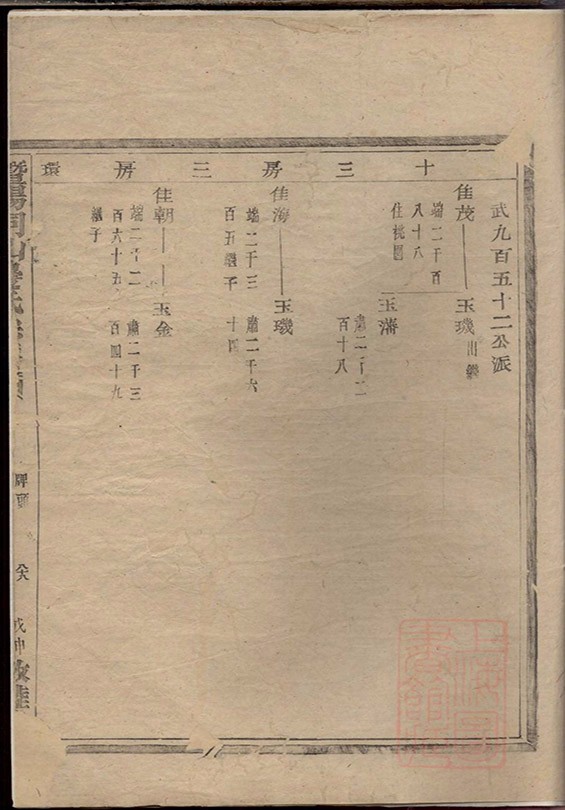 十三房三房環
武九百五十二公派
佳茂 玉璣 出繼
端二千百
八十八
住桃園
玉藩
肅二千二
百十八
佳海 玉璣
端二千三
百五 繼子
肅二千六
十四
佳朝 玉金
端二千二
百六十五
繼子
肅二千三
百四十九
暨陽同山
牌頭
戊申